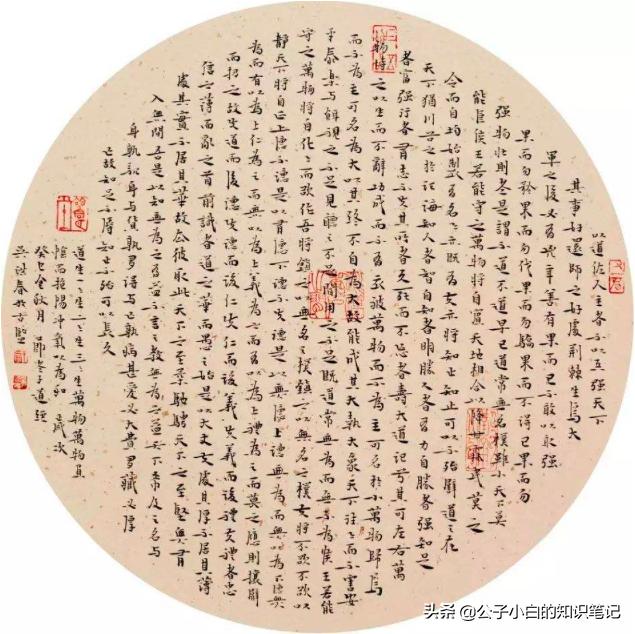 以道佐人主者不以兵强天下
其事好還師之好處荆棘生焉大
軍之後必有凶年善有果而已不敢以取强
果而勿矜果而勿伐果而勿驕果而不得已果而勿
强物壯則老是謂不道不道早已道常無名樸雖小天下莫
能臣侯王若能守之萬物將自賓天地相合以降甘露民莫之
令而自均始制有名名亦既有夫亦將知止知止可以不殆譬道之在
天下猶川谷之於江海知人者智自知者明勝人者有力自勝者强知足
者富强行者有志不失其所者久死而不忘者壽大道汜兮其可左右萬
物恃之以生而不辭功成而不有衣被萬物而不為主可名於小萬物歸焉
而不為主可名為大以其終不自為大故能成其大執大象天下往往而不害安
平泰樂與餌視之不足見聽之不足聞用之不足既道常無為而無不為侯王若能
守之萬物將自化化而欲作吾將鎮之以無名之樸鎮之以無名之樸夫將不欲不欲以
靜天下將自正上德不德是以有德下德不失德是以無德上德無為而無以為下德無
為而有以為上仁為之而無以為上義為之而有以為上禮為之而莫之應則攘臂
而扔之故失道而後德失德而後仁失仁而後義失義而後禮夫禮者忠
信之薄而亂之首前識者道之華而愚之始是以大丈夫處其厚不居其薄
處其實不居其華故去彼取此天下之至柔馳騁天下之至堅無有
入無間吾是以知無為之有益不言之教無為之益天下希及之名與
身孰親身與貨孰多得與亡孰病甚愛必大費多藏必厚
亡故知足不辱知止不殆可以長久
道生一一生二二生三三生萬物萬物負
陰而抱陽沖氣以為和 歲次
癸巳金秋月 節老子道經
頭条 @公子小白的知识笔记